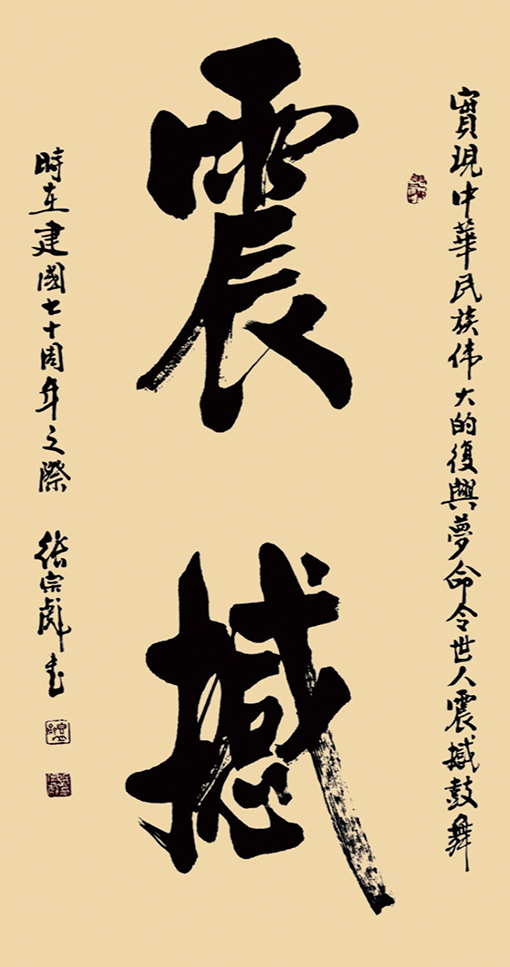 實現中華民族伟大的復興夢命令世人震撼鼓舞
震撼
時在建國七十周年之際 張宗彪书